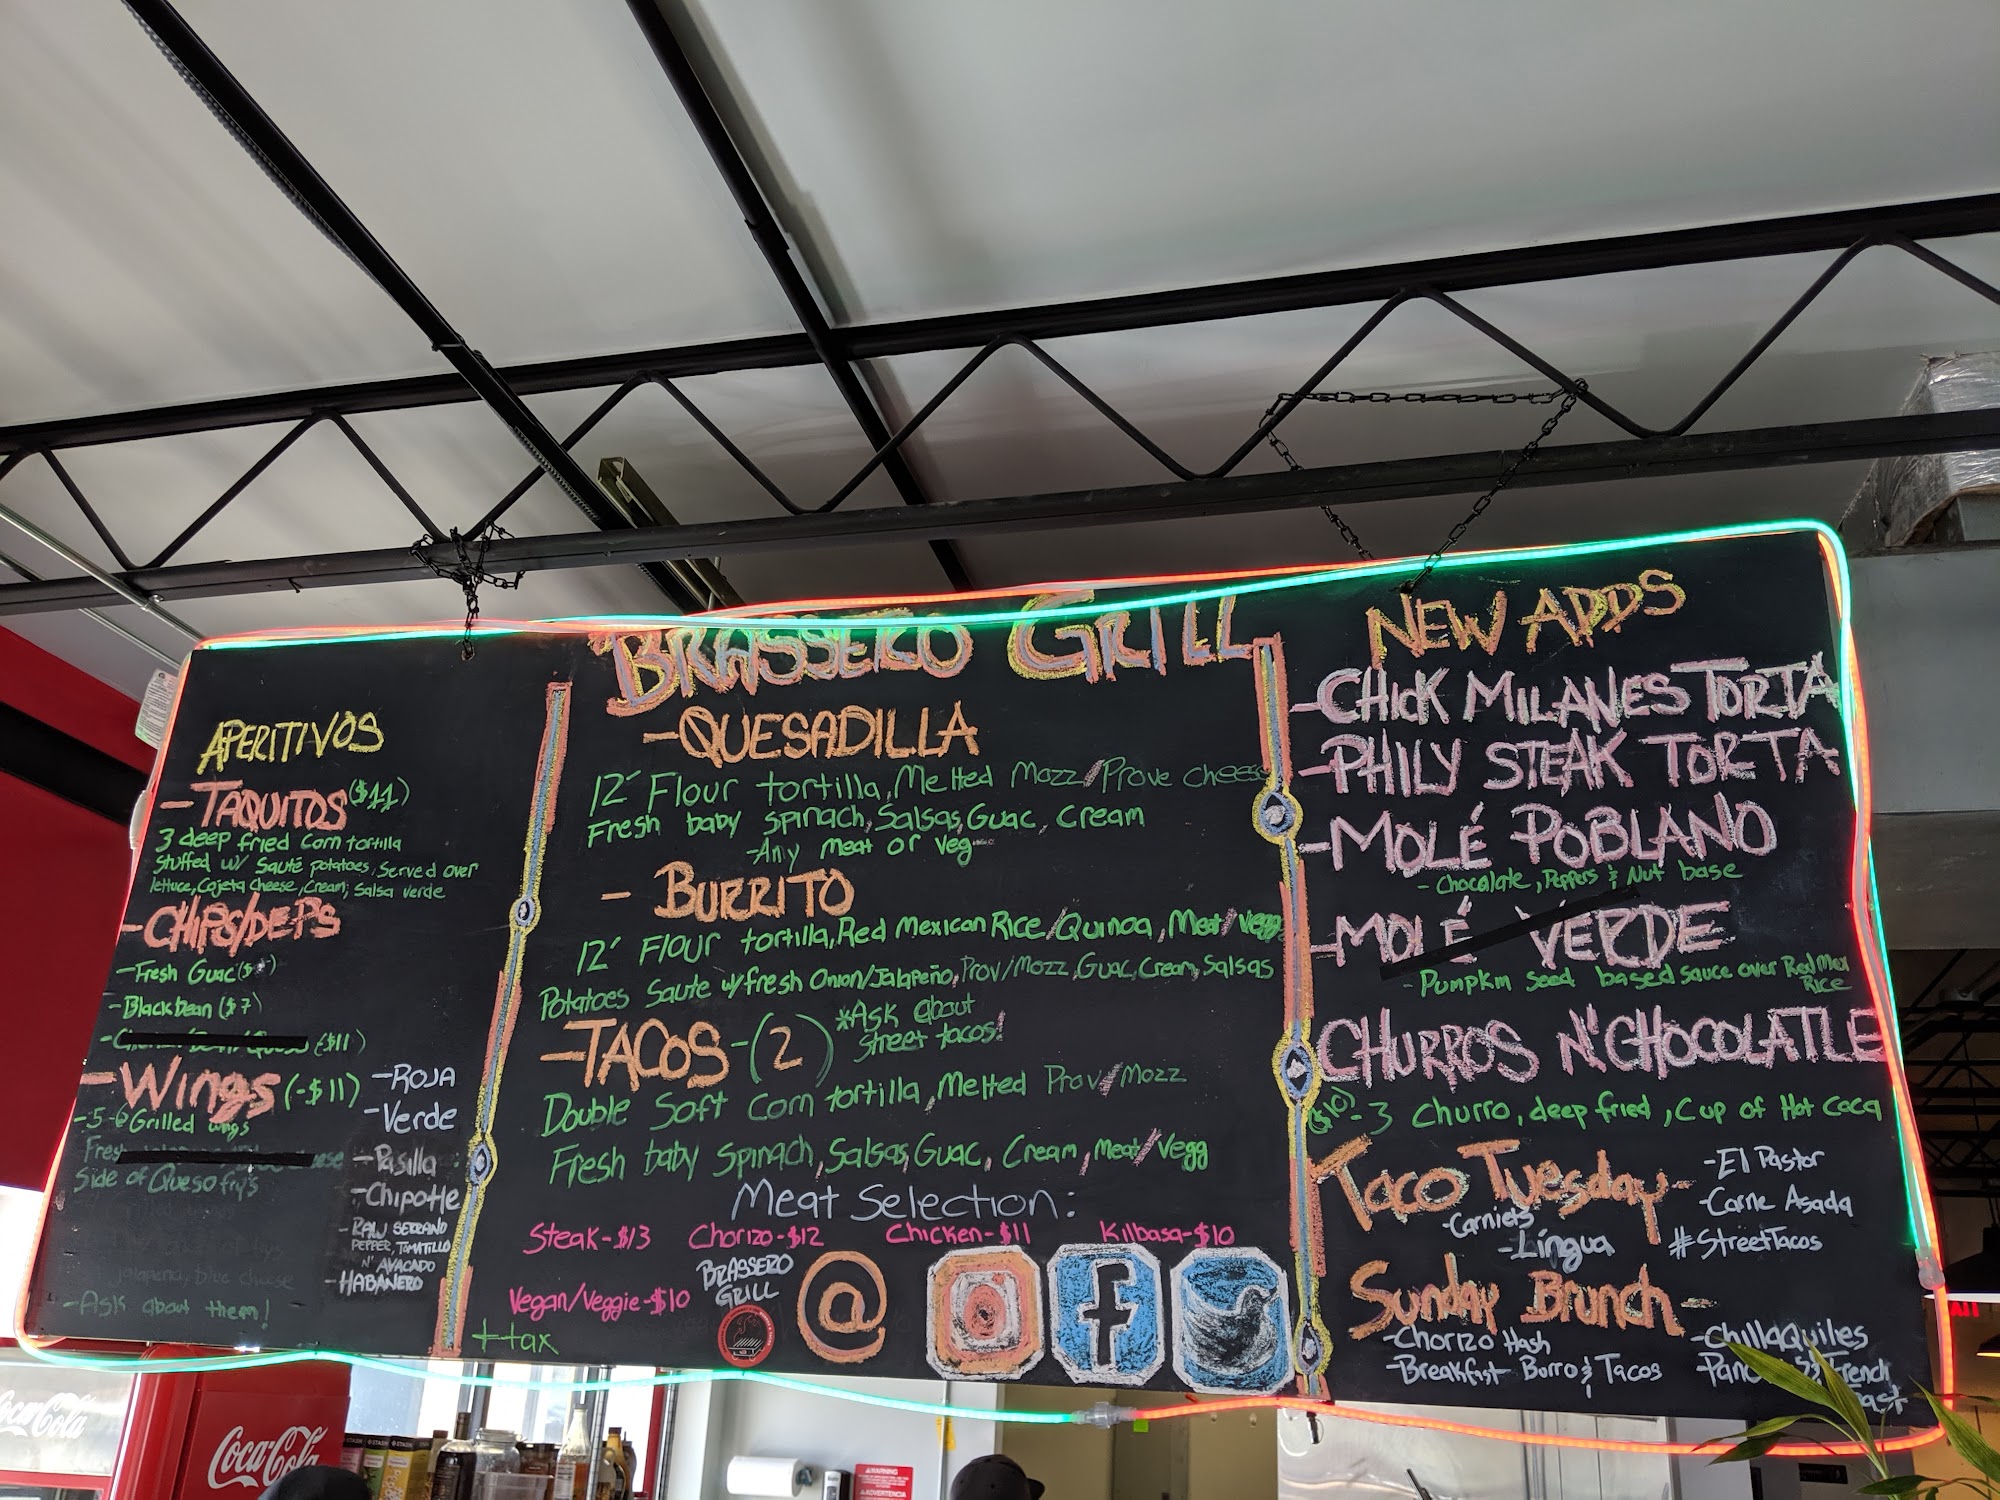 BRASSERO GRILL
APERITIVOS
-TAQUITOS ($11)
3 deep fried corn tortilla
Stuffed w/ Sauté potatoes, Served over
lettuce, Cojeta cheese, Cream, Salsa verde
-CHIPS/DEPS
-Fresh Guac
-Black bean ($7)
($11)
-Wings (-$11)
-5-6 Grilled wings
Side of Queso fry's
-Ask about them!
-ROJA
-Verde
-Pasilla
-Chipotle
-RAW SERRANO
PEPPER, TOMATILLO
N' AVACADO
-HABANERO
-QUESADILLA
12" Flour tortilla, Melted Mozz/Prove cheese
Fresh baby spinach, Salsas, Guac, Cream
-Any meat or veg
-BURRITO
12" FLOUR tortilla, Red Mexican Rice/Quinoa, Meat/Vegg
Potatoes Saute w/fresh Onion/Jalapeño, Prov/Mozz, Guac, Cream, Salsas
-TACOS-(2) *Ask about
street tacos!
Double Soft Corn tortilla, Melted Prov/Mozz
Fresh baby Spinach, Salsas, Guac, Cream, meat/Vegg
Meat Selection:
Steak-$13 Chorizo-$12 Chicken-$11 Kilbasa-$10
Vegan/Veggie-$10
+tax
BRASSERO
GRILL
@
f
NEW ADDS
-CHICK MILANES TORTA
-PHILY STEAK TORTA
-MOLÉ POBLANO
-Chocolate, Peppers & Nut base
-MOLÉ VERDE
-Pumpkin Seed based sauce over Red Mex
Rice
CHURROS N' CHOCOLATLE
($10)-3 Churro, deep fried, Cup of Hot Coca
Taco Tuesday-
-El Pastor
-Carne Asada
-Carniets
-Lingua
#StreetTacos
Sunday Brunch-
-Chorizo Hash
-Breakfast Borro & Tacos
-ChillaQuiles
French
Coca-Cola
Coca-Cola
STASH
STASH
WARNING
ADVERTENCIA